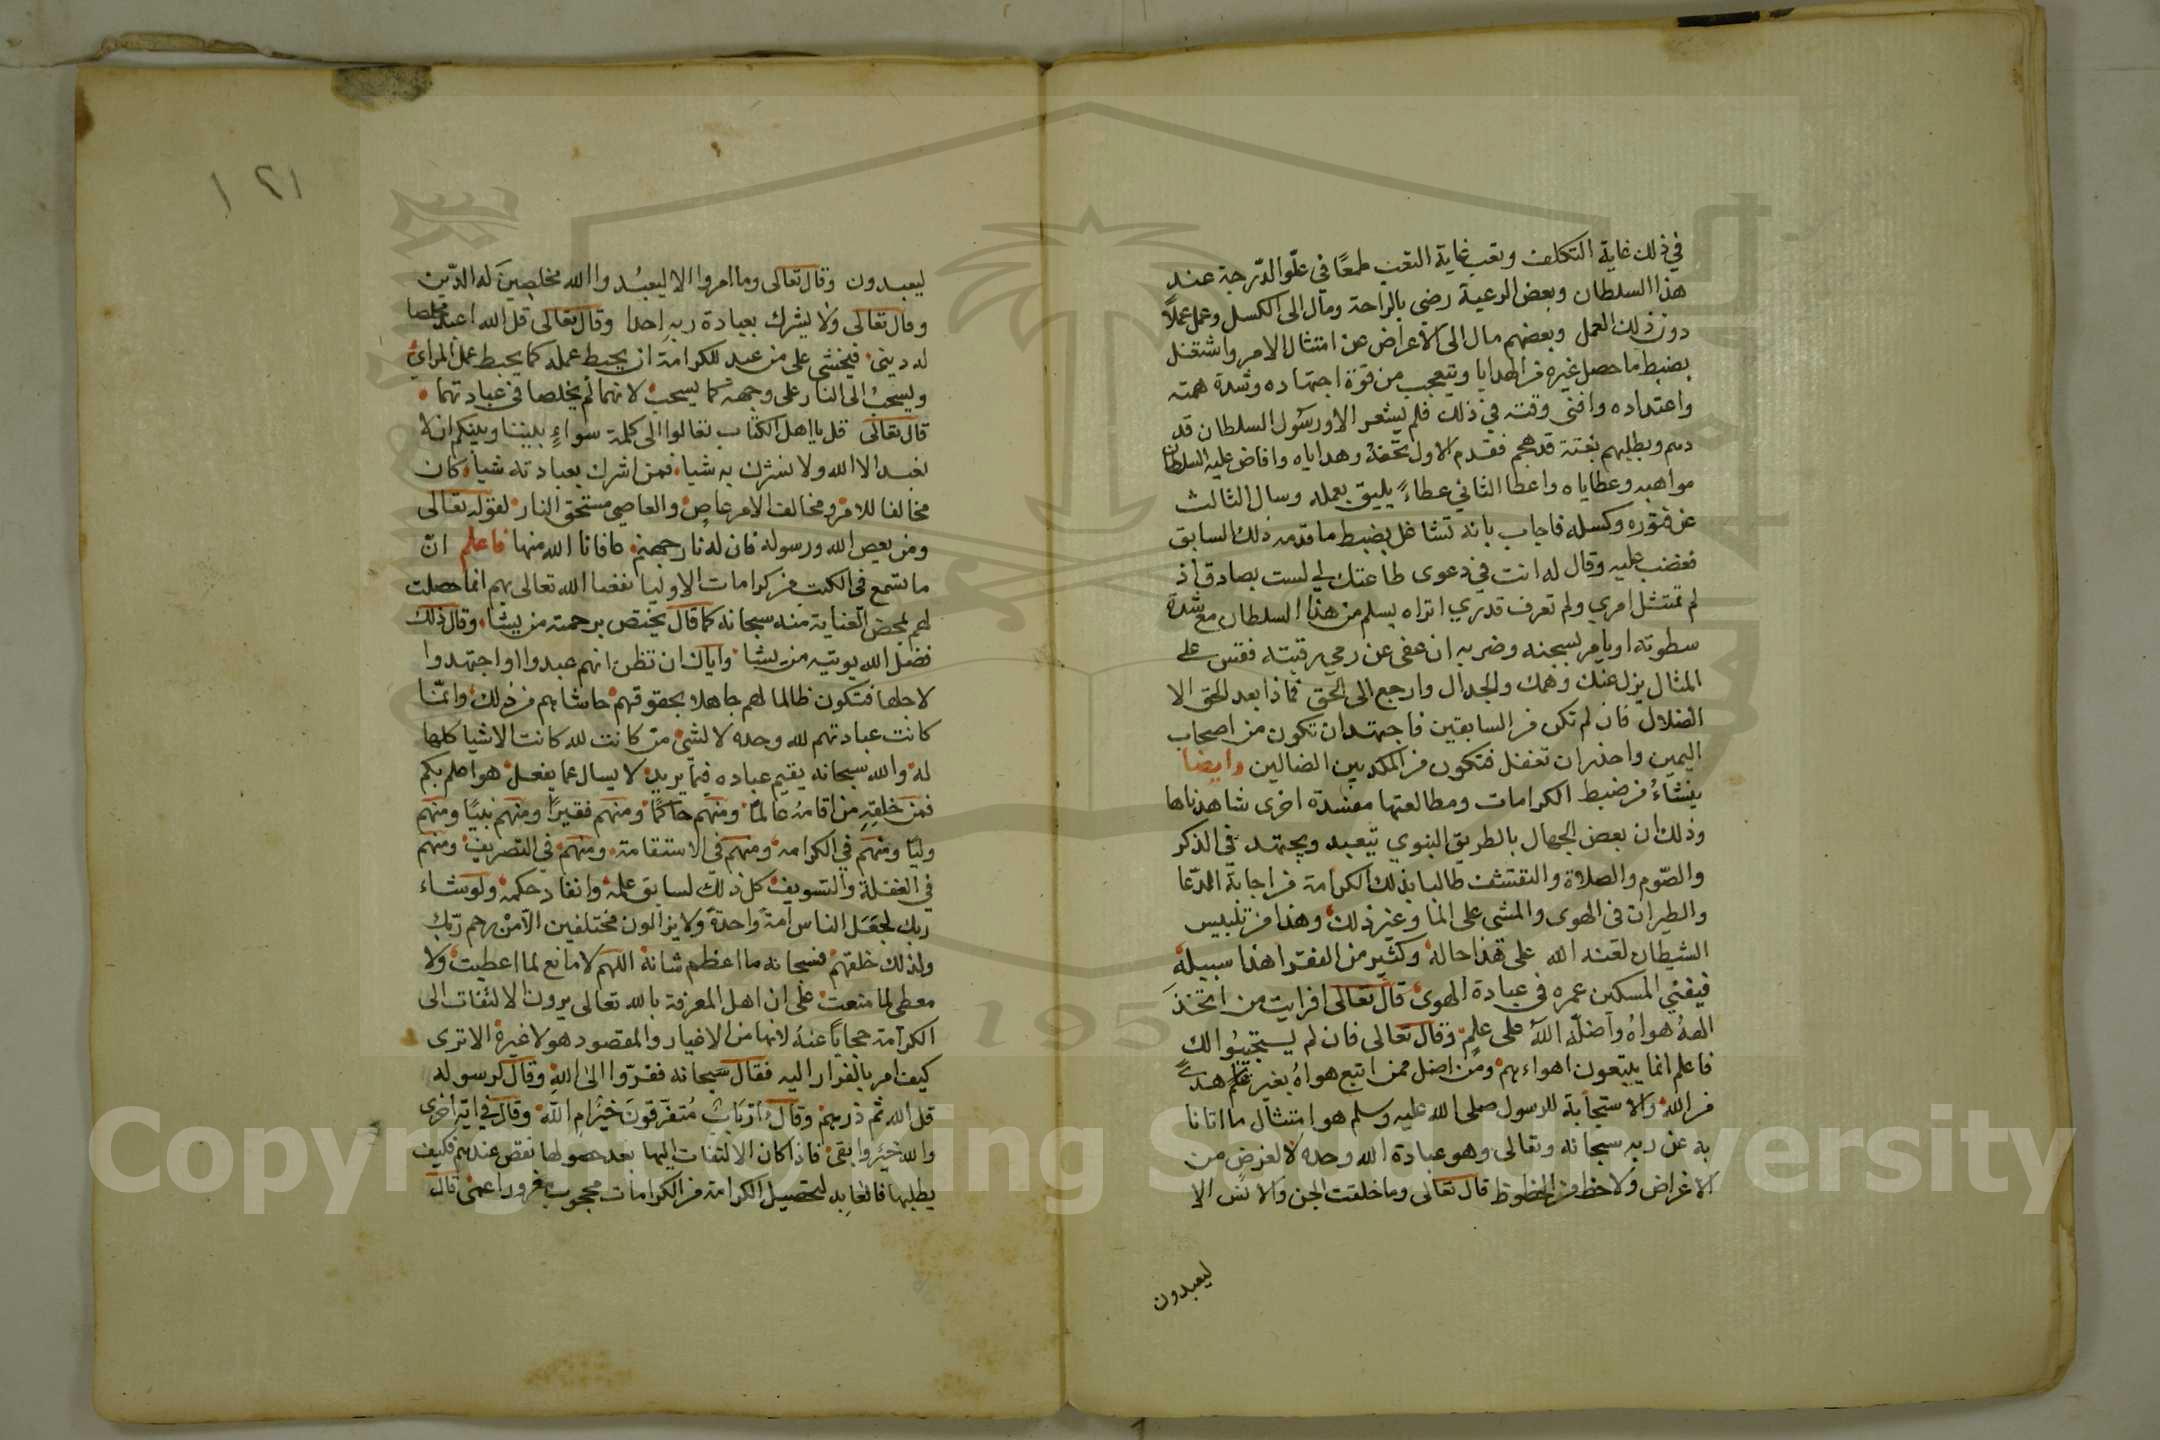 في ذلك غاية التكلف وتعب غاية التعب طمعًا في علوّ الدّرجة عند
هذا السلطان وبعض الرعية رضى بالراحة ومال الى الكسل وعمل عملاً
دون ذلك العمل وبعضهم مال الى الاعراض عن امتثال الامر واشتغل
بضبط ما حصل غيره من الهدايا ويتعجب من قوة اجتهاده وشدة همته
واعتداده وافنى وقته في ذلك فلم يشعر الا ورسول السلطان قد
دعم وبطلبهم بغتة قد هجم فقدم الاول تحفه وهداياه وافاض عليه السلطان
مواهبه وعطاياه واعطا الثاني عطاءً يليق بعمله وسال الثالث
عن فتوره وكسله فاجاب بانه تشاغل بضبط ما قدمه ذلك السابق
فغضب عليه وقال له انت في دعوى طاعتك لي لست بصادق اذ
لم تمتثل امري ولم تعرف قدري اتراه يسلم من هذا السلطان مع شدة
سطوته او يامر بسجنه وضربه ان عفى عن رمي رقبته فقس على
المثال يزل عنك وهمك والجدال وارجع الى الحق فماذا بعد الحق الا
الضلال فان لم تكن من السابقين فاجتهد ان تكون من اصحاب
اليمين واحذر ان تغفل فتكون من المكذبين الضالين وايضا
ينشاءُ من ضبط الكرامات ومطالعتها مفسدة اخرى شاهدناها
وذلك ان بعض الجهال بالطريق النبوي يتعبد ويجتهد في الذكر
والصّوم والصلاة والتقشف طالبا بذلك الكرامة من اجابة الدّعا
والطيران في الهوى والمشى على الما وغير ذلك وهذا من تلبيس
الشيطان لعنه الله على هذا حاله وكثير من الفقرا هذا سبيله
فيفني المسكين عمره في عبادة الهوى قال تعالى افرايت من اتخذ
الهه هواهُ واضلّه اللهُ على علم وقال تعالى فان لم يستجيبُوا لك
فاعلم انما يتبعون اهواءهم ومن اضل ممن اتبع هواهُ بغير علم هدىً
من الله والاستجابة للرسول صلى الله عليه وسلم هو امتثال ما اتانا
به عن ربه سبحانه وتعالى وهو عبادة الله وحده لا لغرض من
الاغراض ولا حظ من الحظوظ قال تعالى وما خلقت الجن والانس الا
ليعبدون
١٢١
ليعبدون وقال تعالى وما امروا الا ليعبُدوا الله مخلصينَ له الدّين
وقال تعالى ولا يشرك بعبادة ربه احدا وقال تعالى قل الله اعبد مخلصا
له ديني فيخشى على من عبد للكرامة ان يحبط عمله كما يحبط عمل المرائي
ويسحبُ الى النار على وجهه كما يسحب لانهما لم يخلصا في عبادتهما
قال تعالى قل يا اهل الكتاب تعالوا الى كلمة سواءٍ بيننا وبينكم ان لا
نعبد الا الله ولا نشرك به شيا فمن اشرك بعبادته شيا كان
مخالفا للامر ومخالف الامر عاصٍ والعاصي مستحق النار لقوله تعالى
ومن يعص الله ورسوله فان له نار جهنم عافانا الله منها فاعلم انّ
ما تسمع في الكتب من كرامات الاوليا نفعنا الله تعالى بهم انما حصلت
لهم لمحض العناية منه سبحانه كما قال يختص برحمته من يشا وقال ذلك
فضل الله يوتيه من يشا واياك ان تظن انهم عبدوا او اجتهدوا
لاجلها فتكون ظالما لهم جاهلا بحقوقهم حاشاهم من ذلك وانّما
كانت عبادتهم لله وحده لا لشي من كانت لله كانت الاشيا كلها
له والله سبحانه يقيم عباده فيما يريد لا يسال عما يفعل هو اعلم بكم
فمن خلقِهِ من اقامهُ عالمًا ومنهم حاكمًا ومنهم فقيرًا ومنهم نبيًا ومنهم
وليًا ومنهم في الكرامة ومنهم في الاستقامة ومنهم في التصريف ومنهم
في الغفلة والتسويف كل ذلك لسابق علمه وانفاد حكمه ولو شاء
ربك لجَعَل الناس امةً واحدةً ولا يزالون مختلفين الّا منْ رحم ربّك
ولذلك خلقهم فسبحانه ما اعظم شانه اللهم لا مانع لما اعطيت ولا
معطى لما منعت على ان اهل المعرفة بالله تعالى يرون الالتفات الى
الكرامة حجابًا عنهُ لانها من الاغيار والمقصود هو لا غيره الا ترى
كيف امر بالفرار اليه فقال سبحانه ففرّوا الى اللهِ وقال لرسوله
قل الله ثم ذرهم وقال أَأرْبَابٌ مُتفرّقونَ خيْرٌ امِ اللهُ وقال في ايةٍ اخرى
والله خيرٌ وابقى فاذا كان الالتفات اليها بعد حصولها نقص عندهم فكيف
يطلبها فالعابد لتحصيل الكرامة من الكرامات محجوب مغرور اعمى قال
Copyright © King Saud University
195